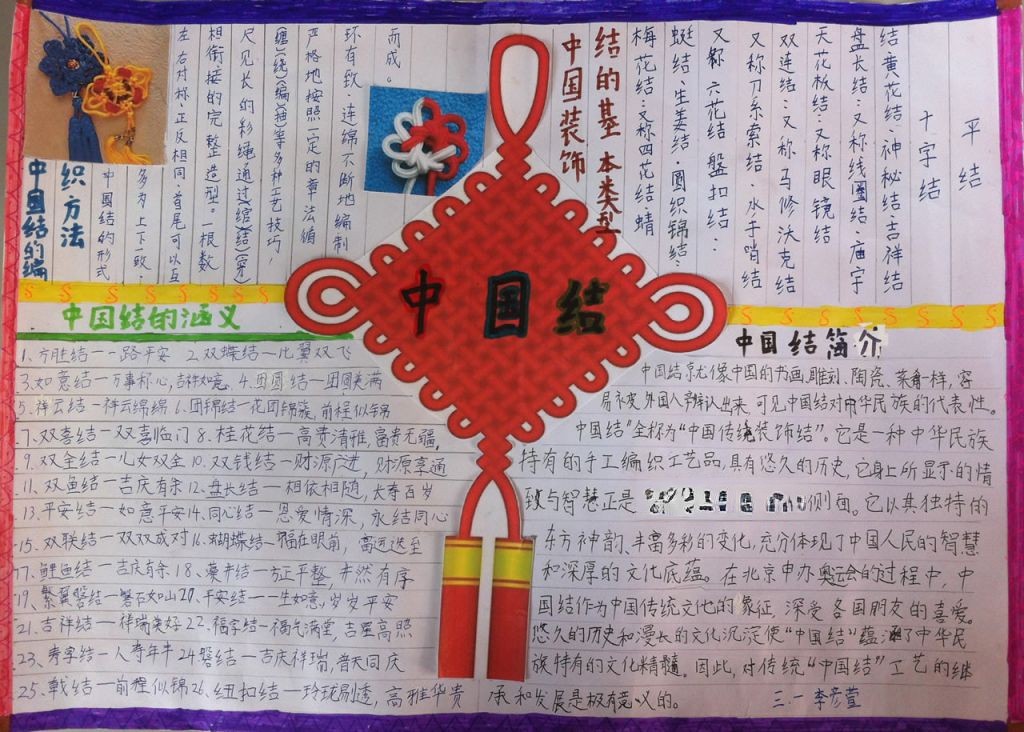 平结
十字结
结:黄花结:神秘结:吉祥结
盘长结:又称线圈结:庙宇
天花板结:又称眼镜结
双连结:又称马修沃克结
又称刀糸索结:水手哨结
又称六花结 盤扣结:
蜓结:生姜结 圆织锦结:
梅花结:又称四花结:蜻
结的基本类型
中国装饰
而成。
环有致、连绵不断地编制
严格地按照一定的章法循
缠)(绕)(编)(抽)等多种工艺技巧,
尺见长的彩绳通过(绾)(结)(穿)
相衔接的完整造型。一根数
左右对称、正反相同、首尾可以互
多为上下一致、
中国结的形式
织方法
中国结的编
中国结
中国结的涵义
1、方胜结——路平安 2、双蝶结—比翼双飞
3、如意结—万事称心,吉祥如意、4、团圆结—团圆美满
5、祥云结—祥云绵绵 6、团锦结—花团锦簇,前程似锦
7、双喜结—双喜临门 8、桂花结—高贵清雅,富贵无疆,
9、双全结—儿女双全 10、双钱结—财源广进,财源享通
11、双鱼结—吉庆有余 12、盘长结—相依相随,长寿百岁
13、平安结—如意平安 14、同心结—恩爱情深,永结同心
15、双联结—双双成对 16、蝴蝶结—福在眼前,高运迭至
17、鲤鱼结—吉庆有余 18、藻井结—方正平整,井然有序
19、繁翼磬结—磐石如山 20、平安结—一生如意,岁岁平安
21、吉祥结—祥瑞美好 22、福字结—福气满堂,吉星高照
23、寿字结—人寿年丰 24、磬结—吉庆祥瑞,普天同庆
25、戟结—前程似锦 26、纽扣结—玲珑剔透,高雅华贵
中国结简介
中国结就像中国的书画、雕刻、陶瓷、菜肴一样,容
易不被外国人辨认出来,可见中国结对中华民族的代表性。
中国结"全称为"中国传统装饰结"。它是一种中华民族
特有的手工编织工艺品,具有悠久的历史,它身上所显示的情
致与智慧正是 侧面。它以其独特的
东方神韵、丰富多彩的变化,充分体现了中国人民的智慧
和深厚的文化底蕴。在北京申办奥运会的过程中,中
国结作为中国传统文化的象征,深受各国朋友的喜爱。
悠久的历史和漫长的文化沉淀使"中国结"蕴涵了中华民
族特有的文化精髓。因此,对传统"中国结"工艺的继
承和发展是极有意义的。 三·一 李彦萱